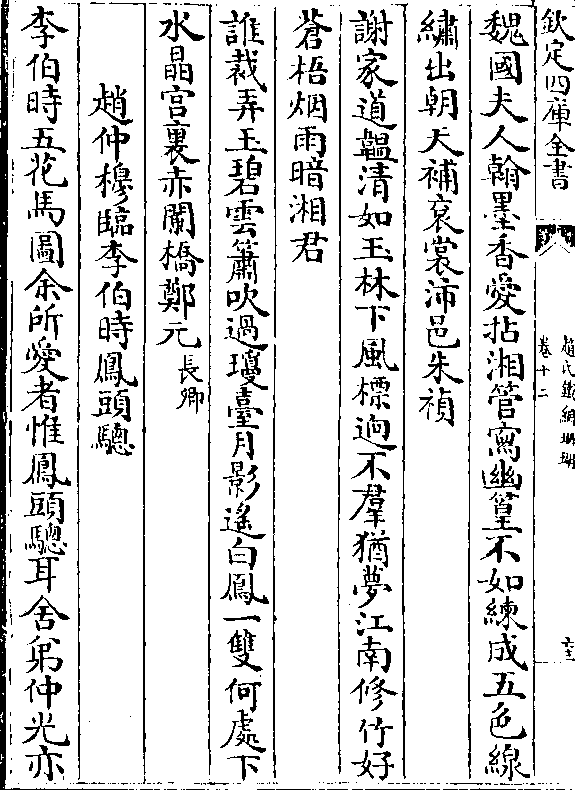 欽定四庫全書
趙氏鐵網珊瑚
卷十二
魏國夫人翰墨香愛拈湘管寫幽篁不如練成五色線
繡出朝天補衮裳沛邑朱禎
謝家道韞清如玉林下風標逈不羣猶夢江南修竹好
蒼梧烟雨暗湘君
誰裁弄玉碧雲簫吹過瓊臺月影遙白鳳一雙何處下
水晶宫裏赤闌橋鄭元長卿
趙仲穆臨李伯時鳳頭驄
李伯時五花馬圖余所愛者惟鳳頭驄耳舍弟仲光亦